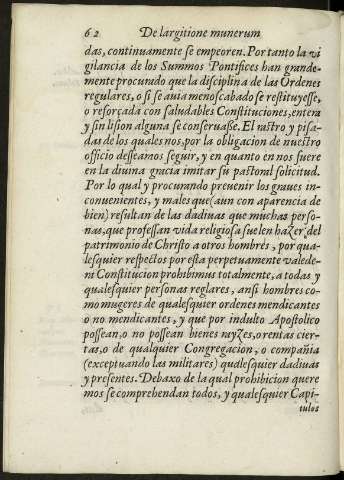 62 De largitione munerum
das, continuamente se empeoren. Por tanto la vi
gilancia de los Summos Pontifices han grande-
mente procurado que la disciplina de las Ordenes
regulares, o si se auia menoscabado se restituyesse,
o reforçada con saludables Constituciones, entera
y sin lision alguna se conseruasse. El rastro y pisa-
das de los quales nos, por la obligacion de nuestro
officio desseamos seguir, y en quanto en nos fuere
en la diuina gracia imitar su pastoral solicitud.
Por lo qual y procurando preuenir los graues in-
conuenientes, y males que (aun con aparencia de
bien) resultan de las dadiuas que muchas perso-
nas, que professan vida religiosa suelen hazer del
patrimonio de Christo a otros hombres, por qua-
lesquier respectos por esta perpetuamente valede-
ni Constitucion prohibimus totalmente, a todas y
qualesquier personas reglares, ansi hombres co-
mo mugeres de qualesquier ordenes mendicantes
o no mendicantes, y que por indulto Apostolico
possean, o no possean bienes rayzes, o rentas cier-
tas, o de qualquier Congregacion, o compañia
(exceptuando las militares) qualesquier dadiuas
y presentes. Debaxo de la qual prohibicion quere
mos se comprehendan todos, y qualesquier Capi-
tulos